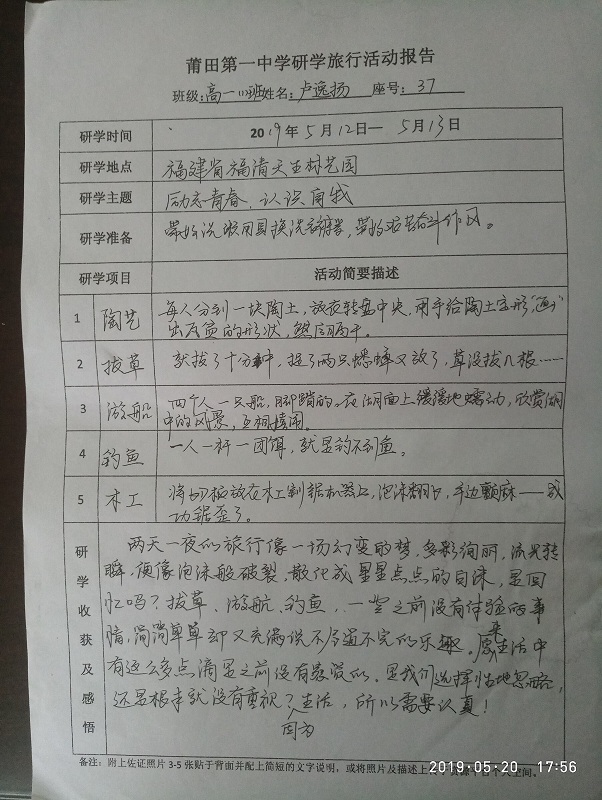 莆田第一中学研学旅行活动报告
班级:高一(11)班姓名:卢逸扬 座号:37
研学时间 2019年5月12日— 5月13日
研学地点 福建省福清天生林艺园
研学主题 励志青春、认识自我
研学准备 带好洗漱用具换洗衣, 带好艰苦奋斗作风。
研学项目 活动简要描述
1 陶艺 每人分到一块陶土,放在转盘中央,用手给陶土定形,"画"
出应有的形状,然后
2 拔草 就拔了十分钟,捉了两只蟋蟀又放了,草没拔几根……
3 游船 两个人一只船,脚踏的。在湖面上缓缓地蠕动,欣赏湖
中的风景,互相
4 钓鱼 一人一杆一团饵,就是钓不到鱼。
5 木工 将切板放在木工制锯机器上,泡沫翻飞,手边颤麻——成
功锯歪了。
研学收获及感悟
两天一夜的旅行像一场幻变的梦,多彩绚丽,流光转
瞬,便像泡沫般破裂,散化成星星点点的白沫,是回
忆吗?拔草、游航、钓鱼,一些之前没有体验的事
情,简简单单却又充满说不尽道不完的乐趣。原来生活中
有这么多点滴是之前没有感受的。是我们选择性地忽略,
还是根本就没有重视?因为生活,所以需要认真!
备注:附上佐证照片3-5张贴于背面并配上简短的文字说明,或将照片及描述上
2019·05·20 17:56